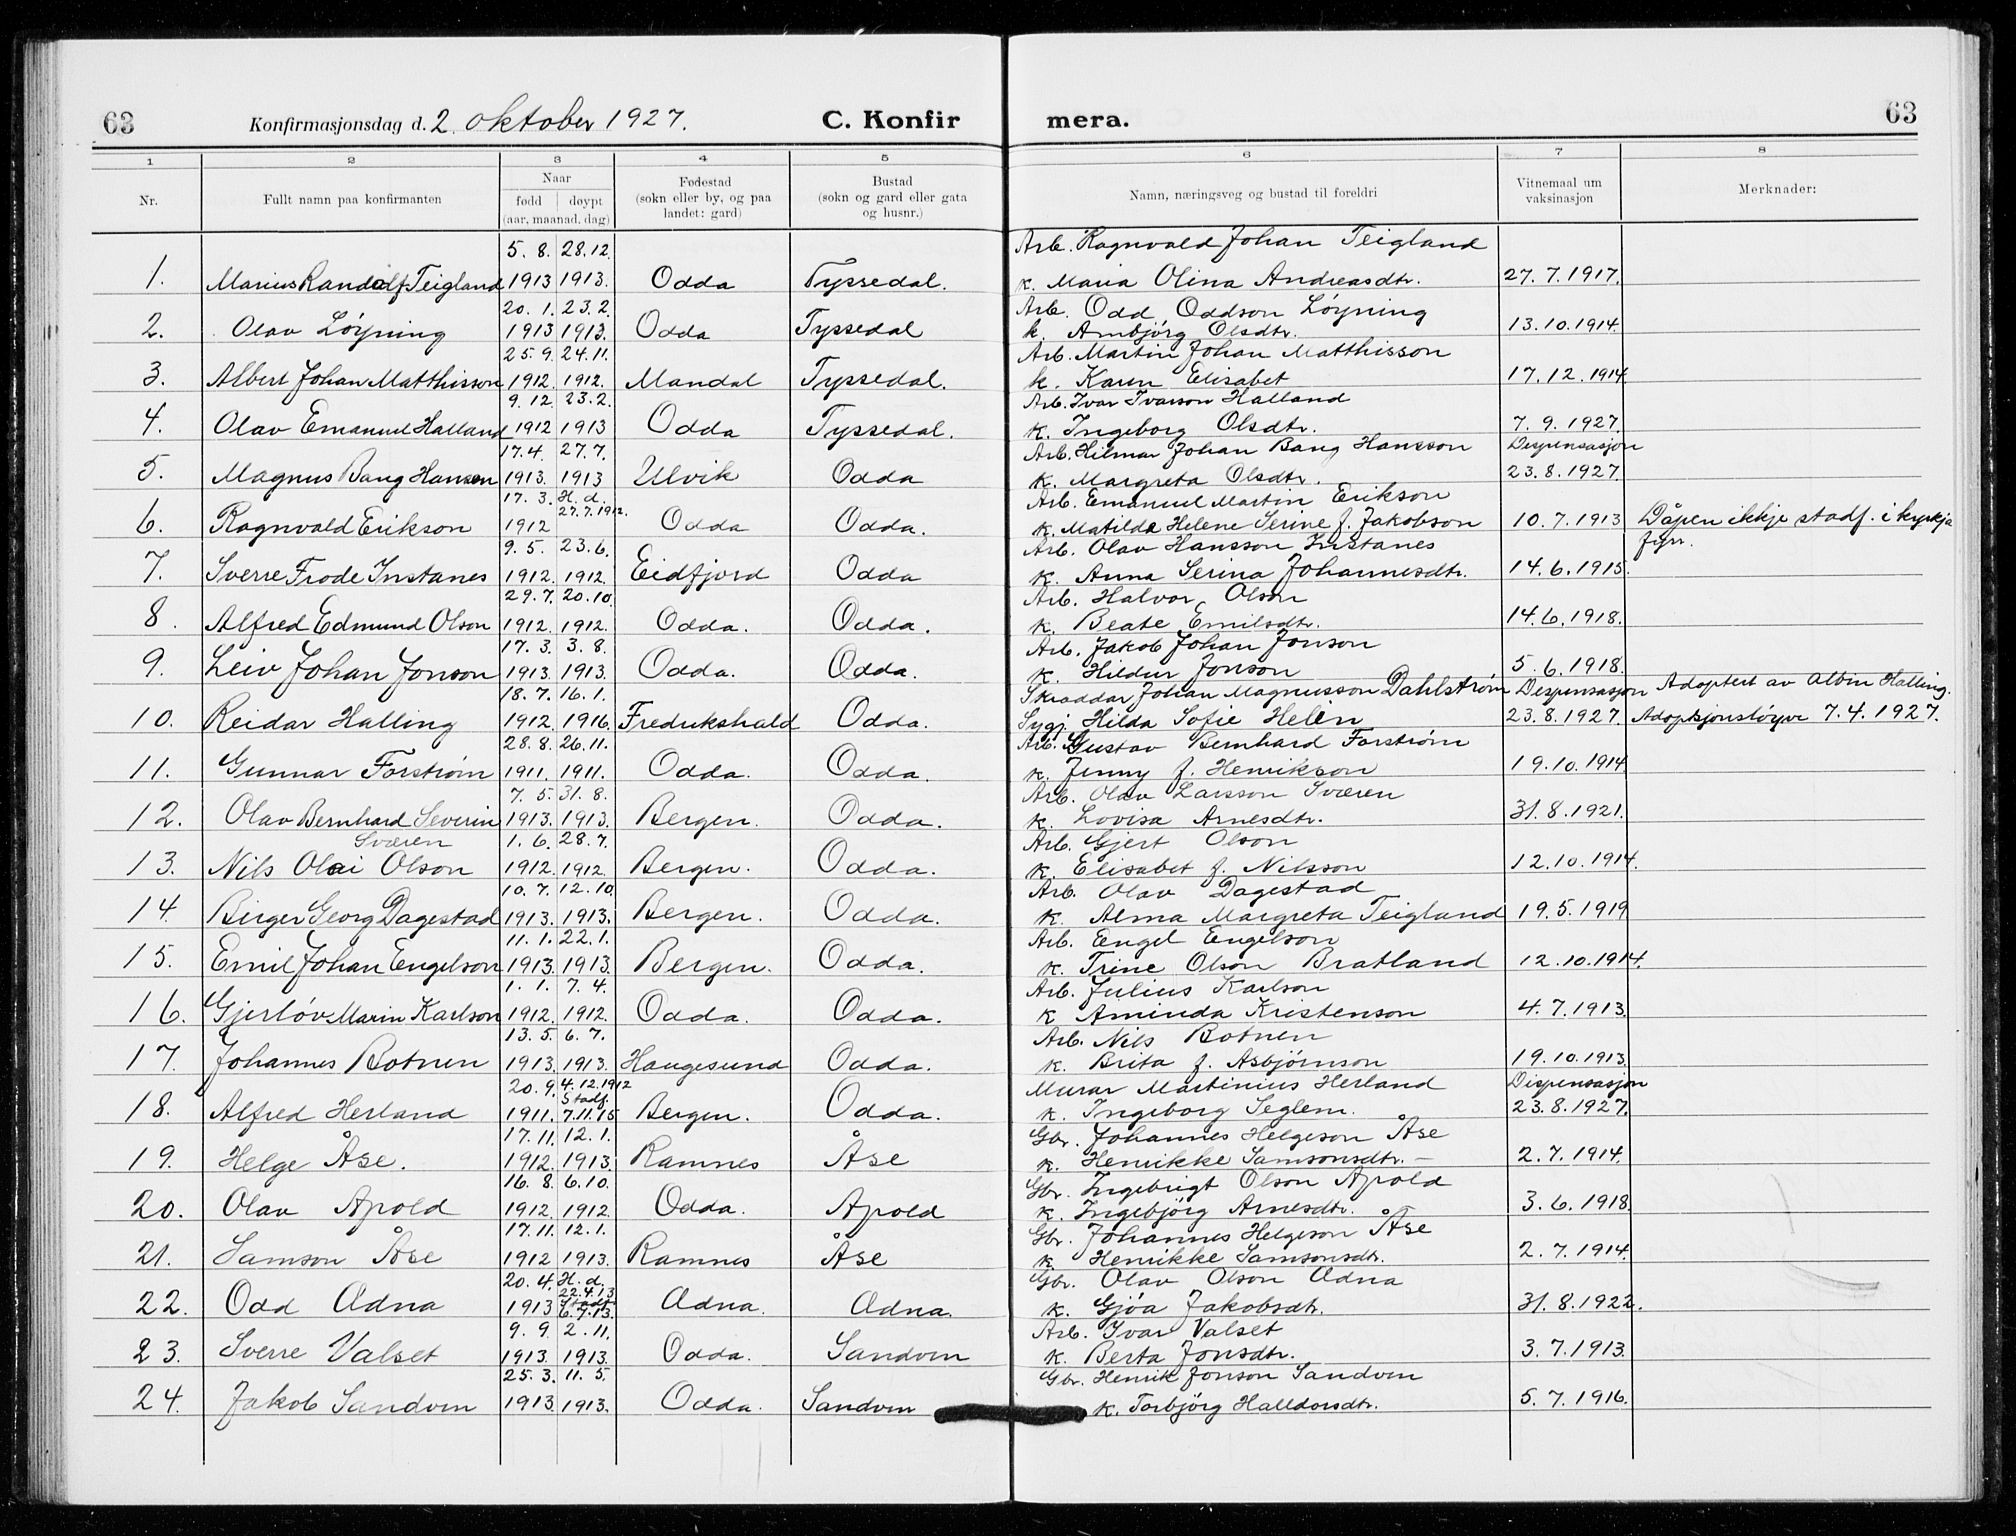 63 Konfirmasjonsdag d. 2. oktober 1927. C. Konfir mera. 63
1 2 3 4 5 6 7 8
Nr. Fullt namn paa konfirmanten Naar født døypt (aar, maanad, dag) Fødestad (sokn eller by, og paa landet: gard) Bustad (sokn og gard eller gata og husnr.) Namn, næringsveg og bustad til foreldri Vitnemaal um vaksinasjon Merknader:
5. 8. 28.12. Arb. Ragnvald Johan Teigland
1. Marius Randolf Teigland 1913 1913. Odda Tyssedal. k. Maria Olina Andreasdtr. 27.7.1917.
20. 1. 23.2. Arb. Odd Oddson Löyning
2. Olav Löyning 1913 1913. Odda Tyssedal k. Ambjörg Olsdtr. 13.10.1914.
25.9. 24.11. Arb. Martin Johan Matthisson
3. Albert Johan Matthisson 1912. 1912. Mandal Tyssedal. k. Karen Elisabet 17.12.1914
9. 12. 23.2. Arb. Ivar Ivarson Halland
4. Olav Emanuel Halland 1912 1913 Odda Tyssedal. k. Ingeborg Olsdtr. 7.9.1927.
17.4. 27.7. Arb. Hilmar Johan Bang Hansson Dispensasjon
5. Magnus Bang Hansen 1913. 1913 Ulvik Odda k. Margreta Olsdtr. 23.8.1927.
17. 3. H. d. 27.7.1912. Arb. Emanuel Martin Erikson
6. Ragnvald Erikson 1912 Odda Odda. k. Matilde Helene Serine f. Jakobson 10.7.1913 Dåpen ikkje stadf. i kyrkja fyrr.
9. 5. 23.6. Arb. Olav Hansson Instanes
7. Sverre Frode Instanes 1912. 1912. Eidfjord Odda k. Anna Serina Johannesdtr. 14.6.1915.
29.7. 20.10. Arb. Halvor Olson
8. Alfred Edmund Olson 1912. 1912. Odda. Odda. k. Beate Emilsdtr. 14.6.1918.
17. 3. 3. 8. Arb. Jakob Johan Jonson
9. Leiv Johan Jonson 1913. 1913. Odda. Odda. k. Hildur Jonson 5.6.1918.
18.7. 16.1. Skraddar Johan Magnusson Dahlstrøm Dispensasjon Adoptert av Albin Halling.
10. Reidar Halling 1912. 1916. Fredrikshald Odda. Sygj. Hilda Sofie Helèn 23.8.1927. Adopsjonsløyve 7.4.1927.
28.8. 26.11. Arb. Gustav Bernhard Forstrøm
11. Gunnar Forstrøm 1911. 1911. Odda. Odda. k. Jenny f. Henrikson 19.10.1914
7. 5. 31. 8. Arb. Olav Larsson Sværen
12. Olav Bernhard Severin 1913. 1913. Bergen. Odda. k. Lovisa Arnesdtr. 31.8.1921.
Sværen 1. 6. 28.7. Arb. Gjert Olson
13. Nils Olai Olson 1912. 1912. Bergen. Odda. k. Elisabet f. Nilsson 12.10.1914.
10. 7. 12. 10. Arb. Olav Dagestad
14. Birger Georg Dagestad 1913. 1913. Bergen. Odda. k. Alma Margreta Teigland 19.5.1919
11. 1. 22.1. Arb. Engel Engelson
15. Emil Johan Engelson 1913. 1913. Bergen. Odda. k. Trine Olson Bratland 12.10.1914.
1. 1. 7. 4. Arb. Julius Karlson
16. Gjerlöv Marin Karlson 1912. 1912. Odda. Odda. k Aminda Kristenson 4.7.1913.
13. 5. 6. 7. Arb. Nils Botnen
17. Johannes Botnen 1913. 1913. Haugesund Odda. k. Brita f. Asbjörnson 19.10.1913.
20.9. 4.12.1912 Stadf. Murar Martinius Herland Dispensasjon
18. Alfred Herland 1911. 7.11.15 Bergen. Odda. k. Ingeborg Seglem. 23.8.1927.
17.11. 12.1. Gbr. Johannes Helgeson Åse
19. Helge Åse. 1912. 1913. Ramnes Åse k. Henrikke Samsonsdtr. – 2.7.1914.
16. 8. 6.10. Gbr. Ingebrigt Olson Apold
20. Olav Apold 1912. 1912 Odda. Apold k. Ingebjörg Arnesdtr. 3.6.1918.
17.11. 12.1. Gbr. Johannes Helgeson Åse
21. Samson Åse 1912 1913. Ramnes Åse k. Henrikke Samsonsdtr. 2.7.1914.
20.4. H. d. 22.4.13 Gbr. Olav Olson Ædna
22. Odd Ædna 1913 Stadf. 6.7.13. Ædna. Ædna. k. Gjöa Jakobsdtr. 31.8.1922.
9. 9. 2. 11. Arb. Ivar Valset
23. Sverre Valset 1913. 1913. Odda. Sandven k. Berta Jonsdtr. 3.7.1913.
25. 3. 11. 5. Gbr. Henrik Jonson Sandven
24. Jakob Sandven 1913 1913. Odda. Sandven k. Torbjörg Halldorsdtr. 5.7.1916.